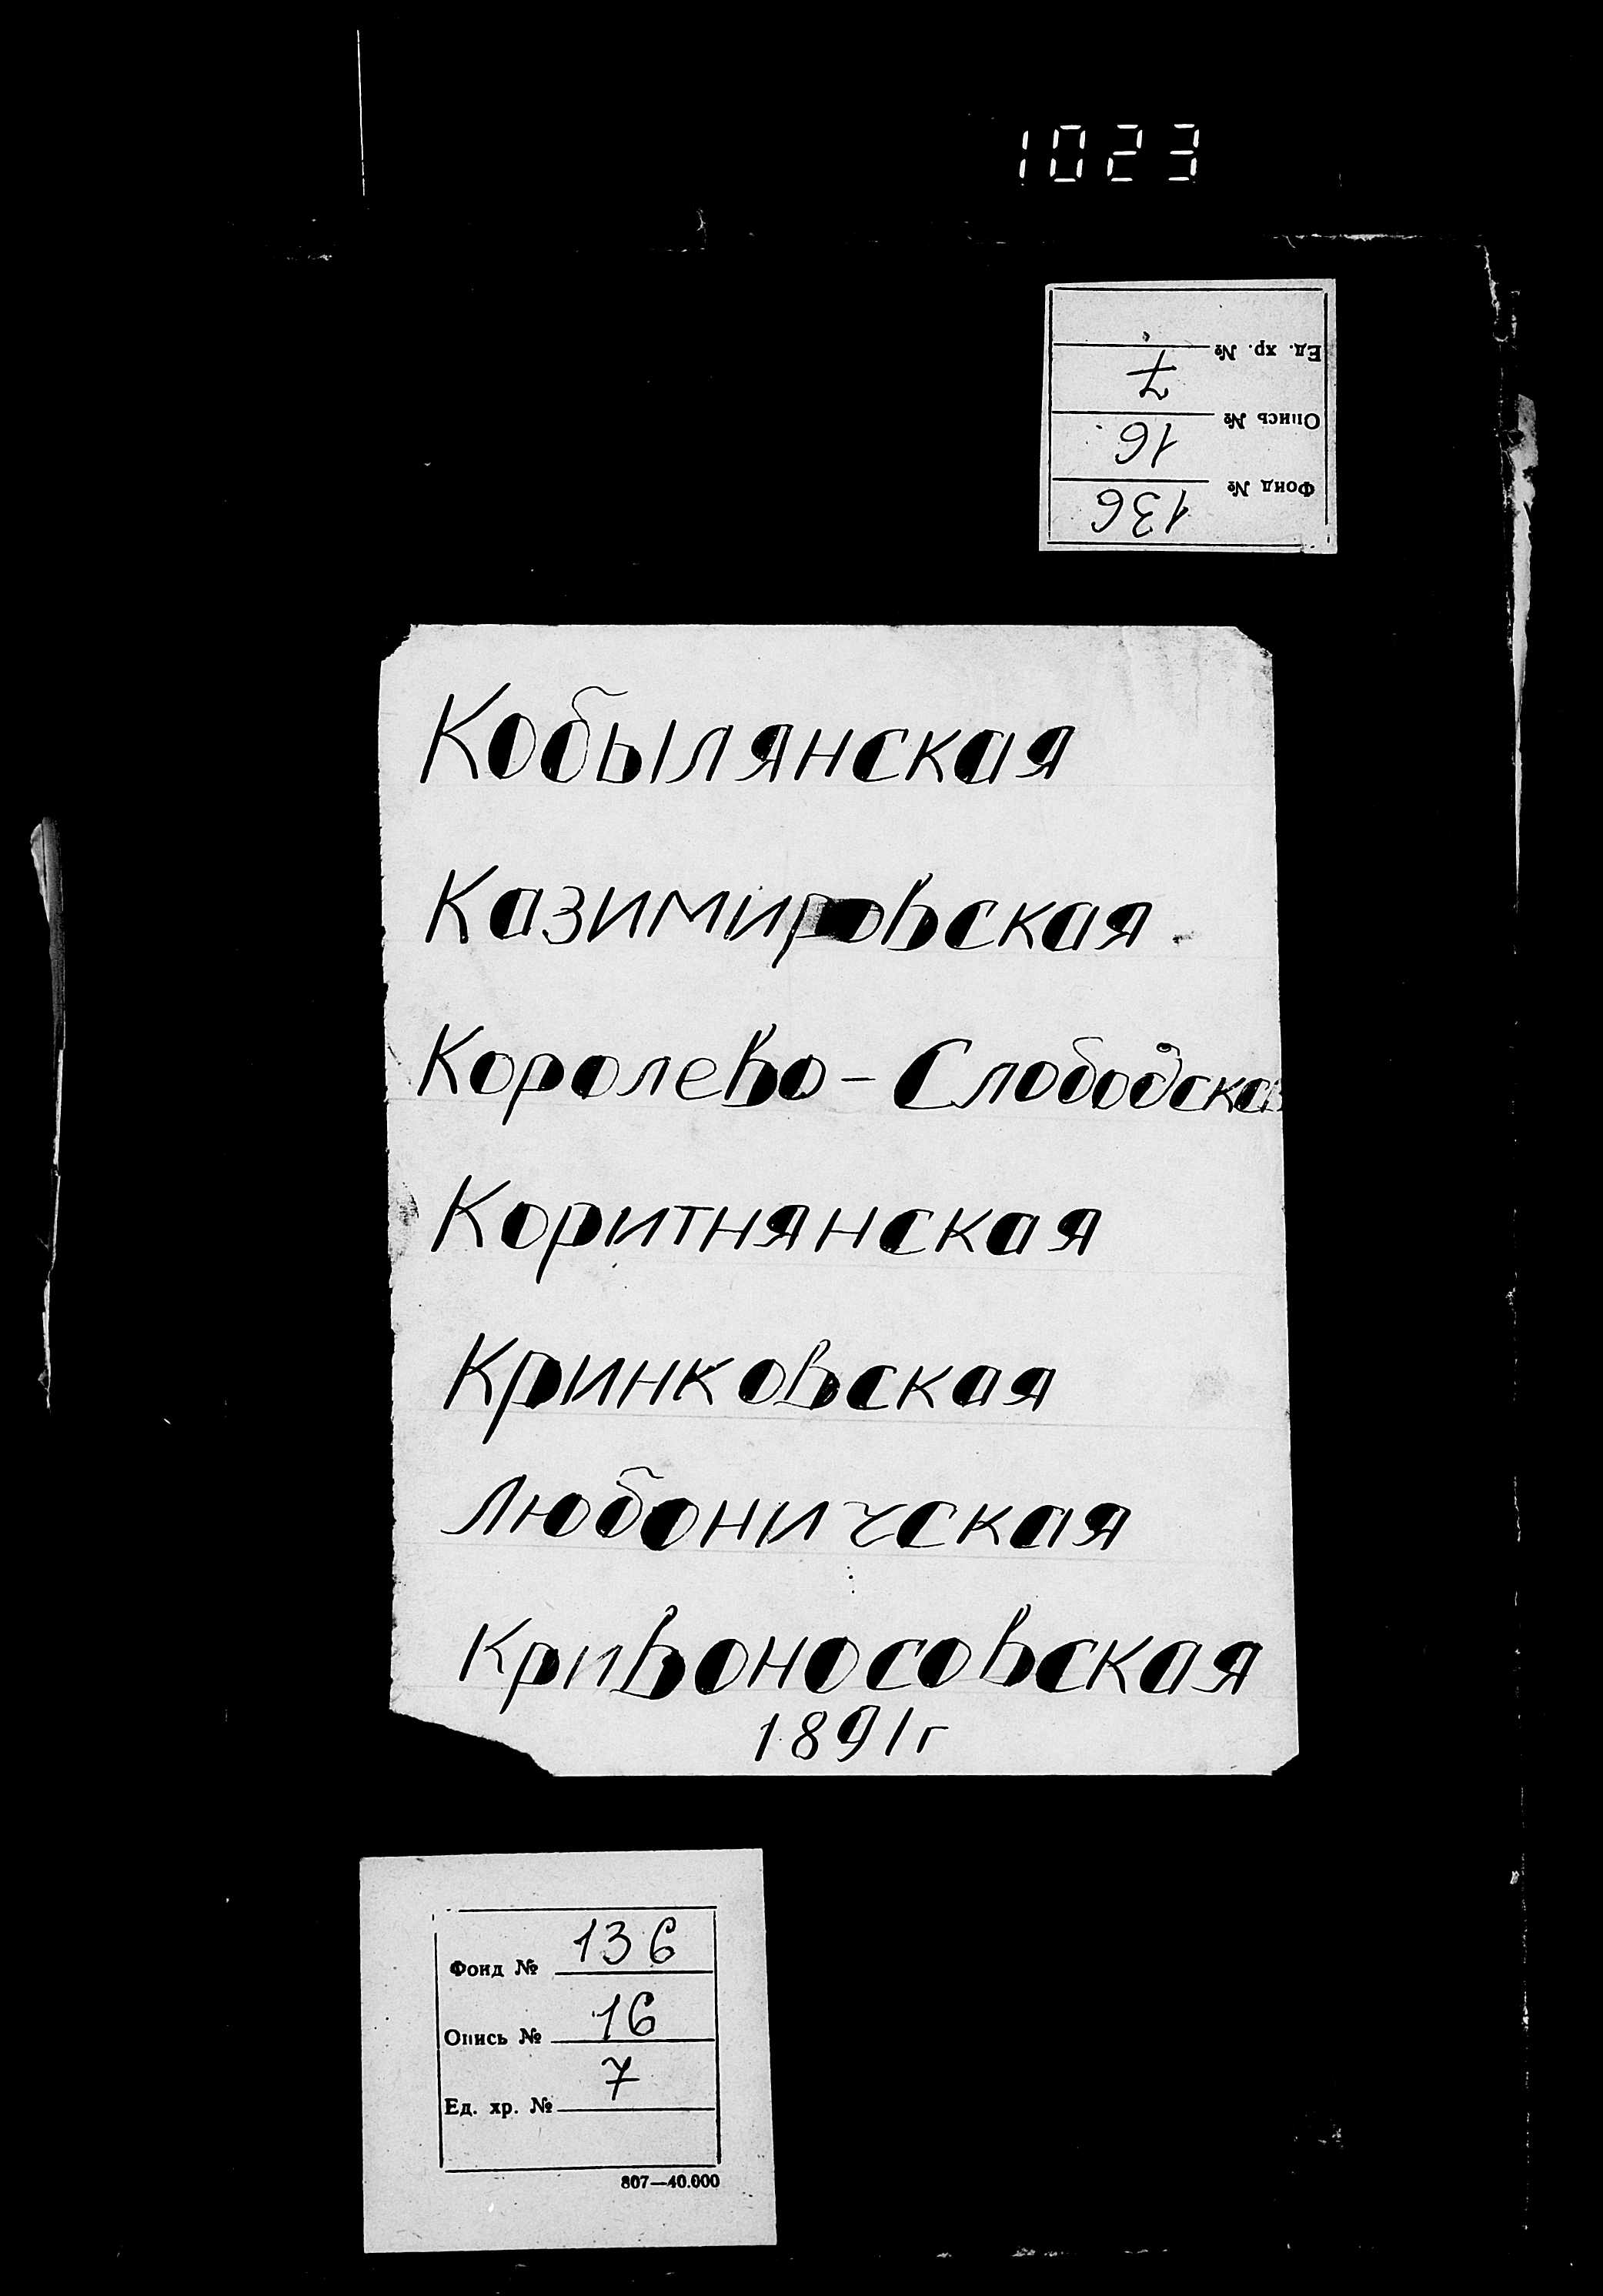 1023
Фонд № 136
Опись № 16
Ед. хр. № 7
Кобылянская
Казимировская
Королево-Слободская
Коритнянская
Кринковская
Любоничская
Кривоносовская
1891г
Фонд № 136
Опись № 16
Ед. хр. № 7
807—40.000